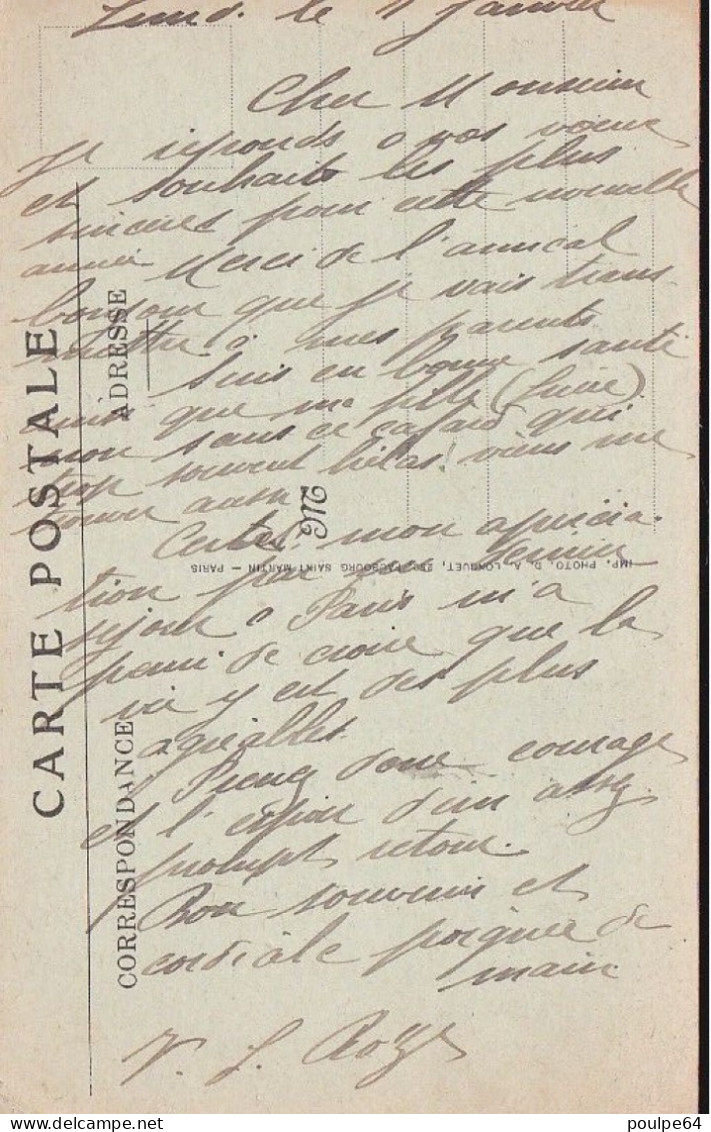 le 1 Janvier
Cher Monsieur
Je réponds à vos voeux
et souhaits les plus
sincères pour cette nouvelle
année Merci de l'amical
bonjour que je vais trans-
mettre à mes parents
Suis en bonne santé
que ma fille
mon sans ce cafard qui
trop souvent hélas! viens me
trouver aussi
Certes mon apprécia-
tion par mon dernier
séjour à Paris m'a
permi de croire que la
vie y est des plus
agréables
Prenez donc courage
et l'espoir d'un assez
prompt retour.
Bon souvenir et
cordiale poignée de
main
CARTE POSTALE
CORRESPONDANCE
ADRESSE
M
IMP. PHOTO. D. A. LONGUET, 250, FAUBOURG SAINT MARTIN — PARIS
poulpe64